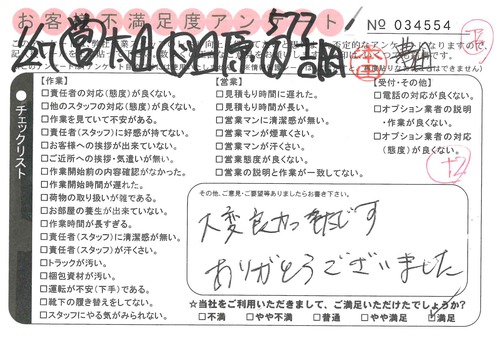 お客様不満足度アンケート
No 034554
チェックリスト
【作業】
□責任者の対応(態度)が良くない。
□他のスタッフの対応(態度)が良くない。
□作業を見ていて不安がある。
□責任者(スタッフ)に好感が持てない。
□お客様への挨拶が出来ていない。
□ご近所への挨拶・気遣いが無い。
□作業開始前の内容確認がなかった。
□作業開始時間が遅れた。
□荷物の取り扱いが雑である。
□お部屋の養生が出来ていない。
□作業時間が長すぎる。
□責任者(スタッフ)に清潔感が無い。
□責任者(スタッフ)が汗くさい。
□トラックが汚い。
□梱包資材が汚い。
□運転が不安(下手)である。
□靴下の履き替えをしてない。
□スタッフにやる気がみられない。
【営業】
□見積もり時間に遅れた。
□見積もり時間が長い。
□営業マンに清潔感が無い。
□営業マンが煙草くさい。
□営業マンが汗くさい。
□営業態度が良くない。
□営業の説明と作業が一致してない。
【受付・その他】
□電話の対応が良くない。
□オプション業者の説明
・作業が良くない。
□オプション業者の対応
(態度)が良くない。
その他、ご意見・ご要望等ありましたらお書き下さい。
大変良かったです
ありがとうございました
☆当社をご利用いただきまして、ご満足いただけたでしょうか?
□不満 □やや不満 □普通 □やや満足 ☑満足